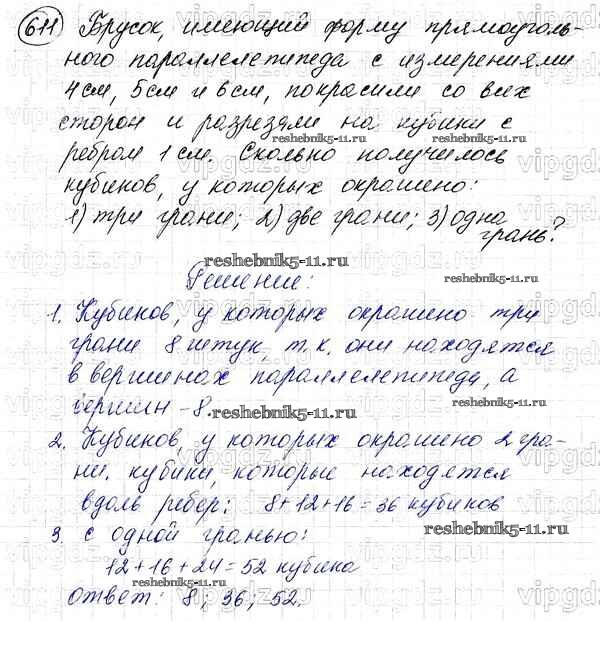 611 Брусок, имеющий форму прямоуголь-
ного параллелепипеда с измерениями
4 см, 5 см и 6 см, покрасили со всех
сторон и разрезали на кубики с
reshebnik5-11.ru
ребром 1 см. Сколько получилось
кубиков, у которых окрашено:
1) три грани; 2) две грани; 3) одна
грань?
reshebnik5-11.ru
reshebnik5-11.ru
Решение:
1. Кубиков, у которых окрашено три
грани 8 штук, т.к. они находятся
в вершинах параллелепипеда, а
вершин - 8.
reshebnik5-11.ru
reshebnik5-11.ru
2. Кубиков, у которых окрашено 2 гра-
ни. кубики, которые находятся
вдоль ребер: 8+12+16=36 кубиков
3. с одной гранью:
reshebnik5-11.ru
12+16+24=52 кубика
reshebnik5-11.ru
ответ: 8; 36; 52.